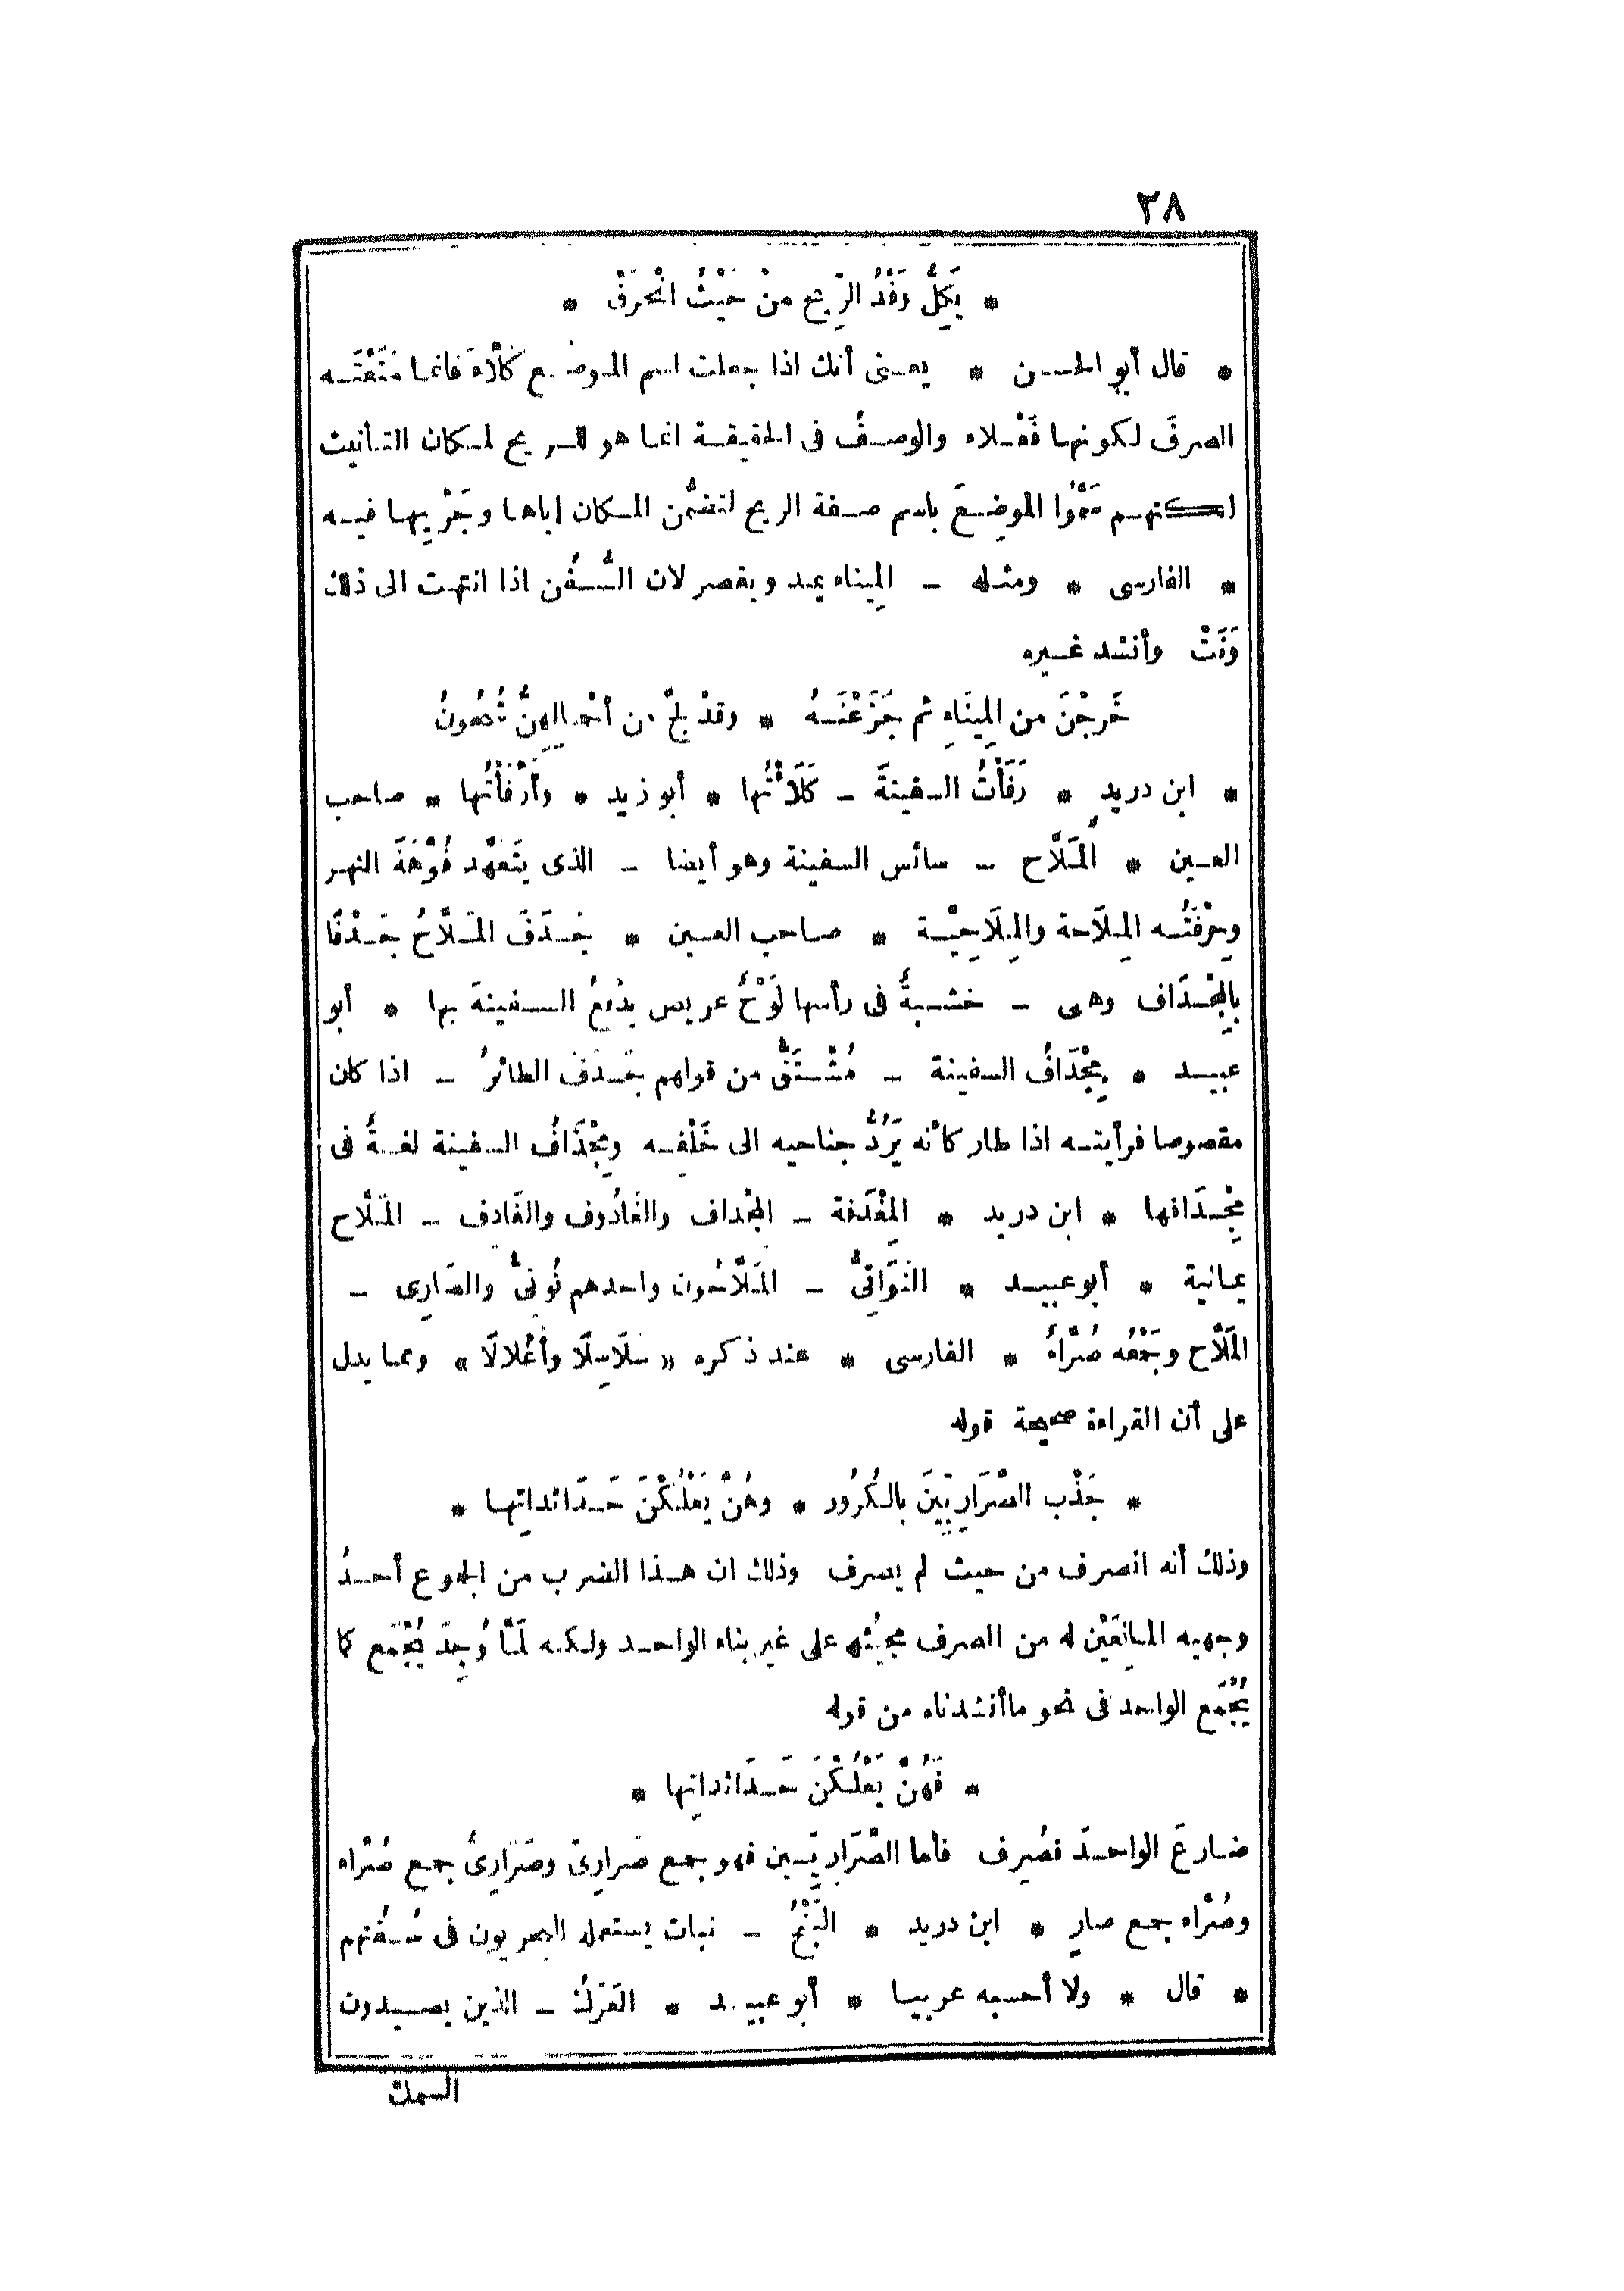 ٢٨
* يَكِلُّ وَفْدُ الرِّيحِ مِنْ حَيْثُ انْخَرَقْ *
* قال أبو الحسن * يعنى أنك اذا جعلت اسم الموضع كَلَّاءَ فانما مَنَعْتَه
الصرفَ لكونها فَعْلاء والوصفُ فى الحقيقة انما هو للريح لمكان التأنيث
لكنهم سَمَّوُا الموضِعَ باسم صفة الريح لتضمُّن المكان إياها وجَرْيِها فيه
* الفارسى * ومثله – المِيناء يمد ويقصر لان السُّفُن اذا انتهت الى ذلك
وَنَتْ وأنشد غيره
خَرجْنَ من المِينَاءِ ثم جَزَعْنَهُ * وقدْ لجَّ من أحْمالِهِنَّ شُحُونُ
* ابن دريد * رَفَأْتُ السفينةَ – كَلَّأْتُها * أبو زيد * وأَرْفَأْتُها * صاحب
العين * المَلَّاح – سائس السفينة وهو أيضا – الذى يَتَعَهَّد فُوَّهَةَ النهر
وحِرْفَتُه المِلَاحة والمِلَاحِيَّة * صاحب العين * جَدَفَ المَلَّاحُ جَدْفًا
بالمِجْدَاف وهى – خشبةٌ فى رأسها لَوْحٌ عريض يدفعُ السفينةَ بها * أبو
عبيد * مِجْدَافُ السفينة – مُشْتَقٌّ من قولهم جَدَفَ الطائرُ – اذا كان
مقصوصا فرأيته اذا طار كأنه يَرُدُّ جناحيه الى خَلْفِه ومِجْذَافُ السفينة لغةٌ فى
مِجْدَافها * ابن دريد * المِغْدَفة – المِجْداف والغَادُوف والغَادِف – المَلَّاح
يمانية * أبو عبيد * النَوَاتِىُّ – المَلَّاحُون واحدهم نُوتِىٌّ والصَّارِى –
المَلَّاح وجَمْعُه صُرَّاءُ * الفارسى * عند ذكره «سَلَاسِلًا وأَغْلَالًا» ومما يدل
على أن القراءة صحيحة قوله
* جَذْب الصَّرَارِيِّينَ بالكُرُور * وهُنَّ يَعْلُكْنَ حَدَائداتِها *
وذلك أنه انصرف من حيث لم يصرف وذلك ان هذا الضرب من الجموع أحدُ
وجهيه المانِعَيْن له من الصرف مجيئه على غير بناء الواحد ولكنه لَمَّا وُجِدَ يُجْمَع كما
يُجْمَع الواحد فى نحو ماأنشدناه من قوله
* فَهُنَّ يَعْلُكْنَ حَدَائداتِها *
ضارعَ الواحدَ فصُرِف فأما الصَّرَارِيِّين فهو جمع صَرارِىّ وصَرَارِىُّ جمع صُرَّاء
وصُرَّاء جمع صارٍ * ابن دريد * – نبات يستعمله البحريون فى سُفُنهم
* قال * ولا أحسبه عربيا * أبو عبيد * العَرَكُ – الذين يصيدون
السمك